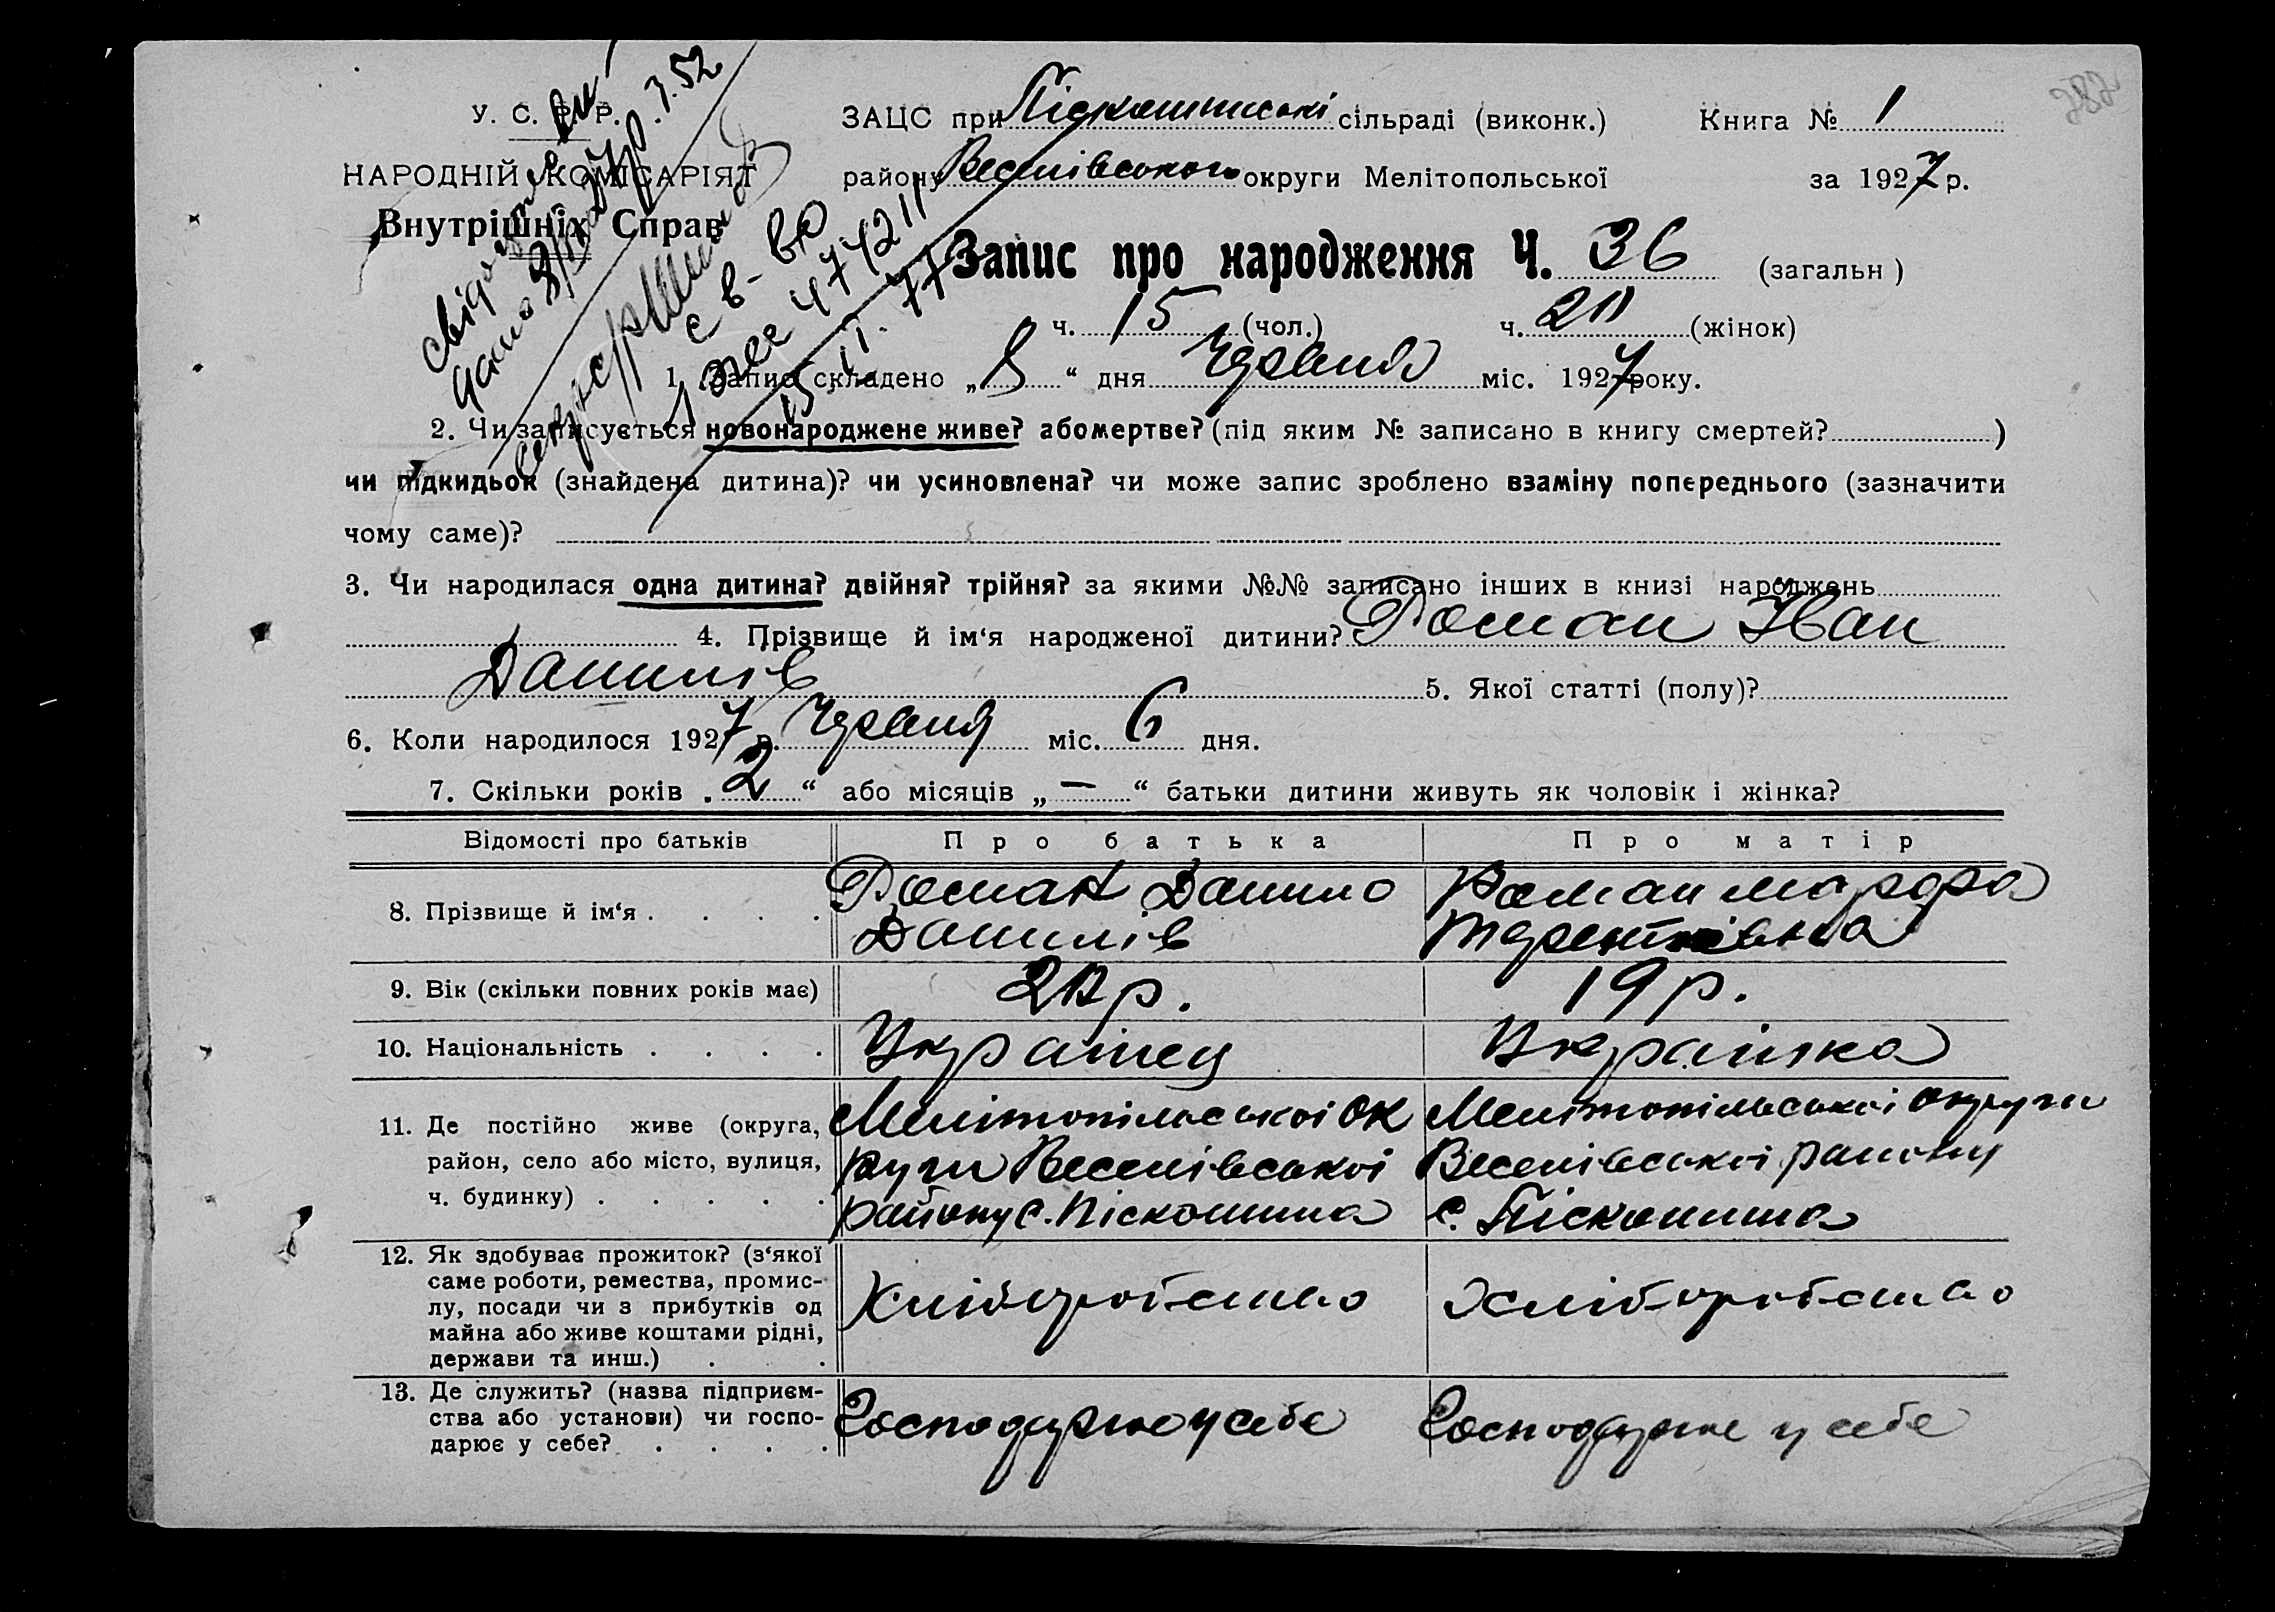 У. С. Р. Р.
НАРОДНІЙ КОМІСАРІЯТ
Внутрішніх Справ
ЗАЦС при Піскошинські сільраді (виконк.) Книга № 1
району Веселівського округи Мелітопольської за 1927 р.
Запис про народження Ч. 36 (загальн)
ч. 15 (чол.) ч. (жінок)
1. Запис складено „8“ дня Червня міс. 1927 року.
2. Чи записується новонароджене живе? або мертве? (під яким № записано в книгу смертей? )
чи підкидьок (знайдена дитина)? чи усиновлена? чи може запис зроблено взаміну попереднього (зазначити
чому саме)?
3. Чи народилася одна дитина? двійня? трійня? за якими №№ записано інших в книзі народжень
4. Прізвище й ім‘я народженої дитини? Роман Іван
Данилів 5. Якої статті (полу)?
6. Коли народилося 1927 р. Червня міс. 6 дня.
7. Скільки років „2“ або місяців „—“ батьки дитини живуть як чоловік і жінка?
Відомості про батьків Про батька Про матір
8. Прізвище й ім‘я . . . . Роман Данило Роман Марфа
Данилів Терентівна
9. Вік (скільки повних років має) 19 р.
10. Національність . . . . Українец Українка
11. Де постійно живе (округа, Мелітопільської ок Мелітопільської округи
район, село або місто, вулиця, руги Веселівської Веселівської району
ч. будинку) . . . . . району с. Піскошина с. Піскошина
12. Як здобуває прожиток? (з‘якої
саме роботи, ремества, промис-
лу, посади чи з прибутків од Хліборобство Хліборобство
майна або живе коштами рідні,
держави та инш.) . .
13. Де служить? (назва підприєм-
ства або установи) чи госпо- Господурює у себе Господурює у себе
дарює у себе? . . . .